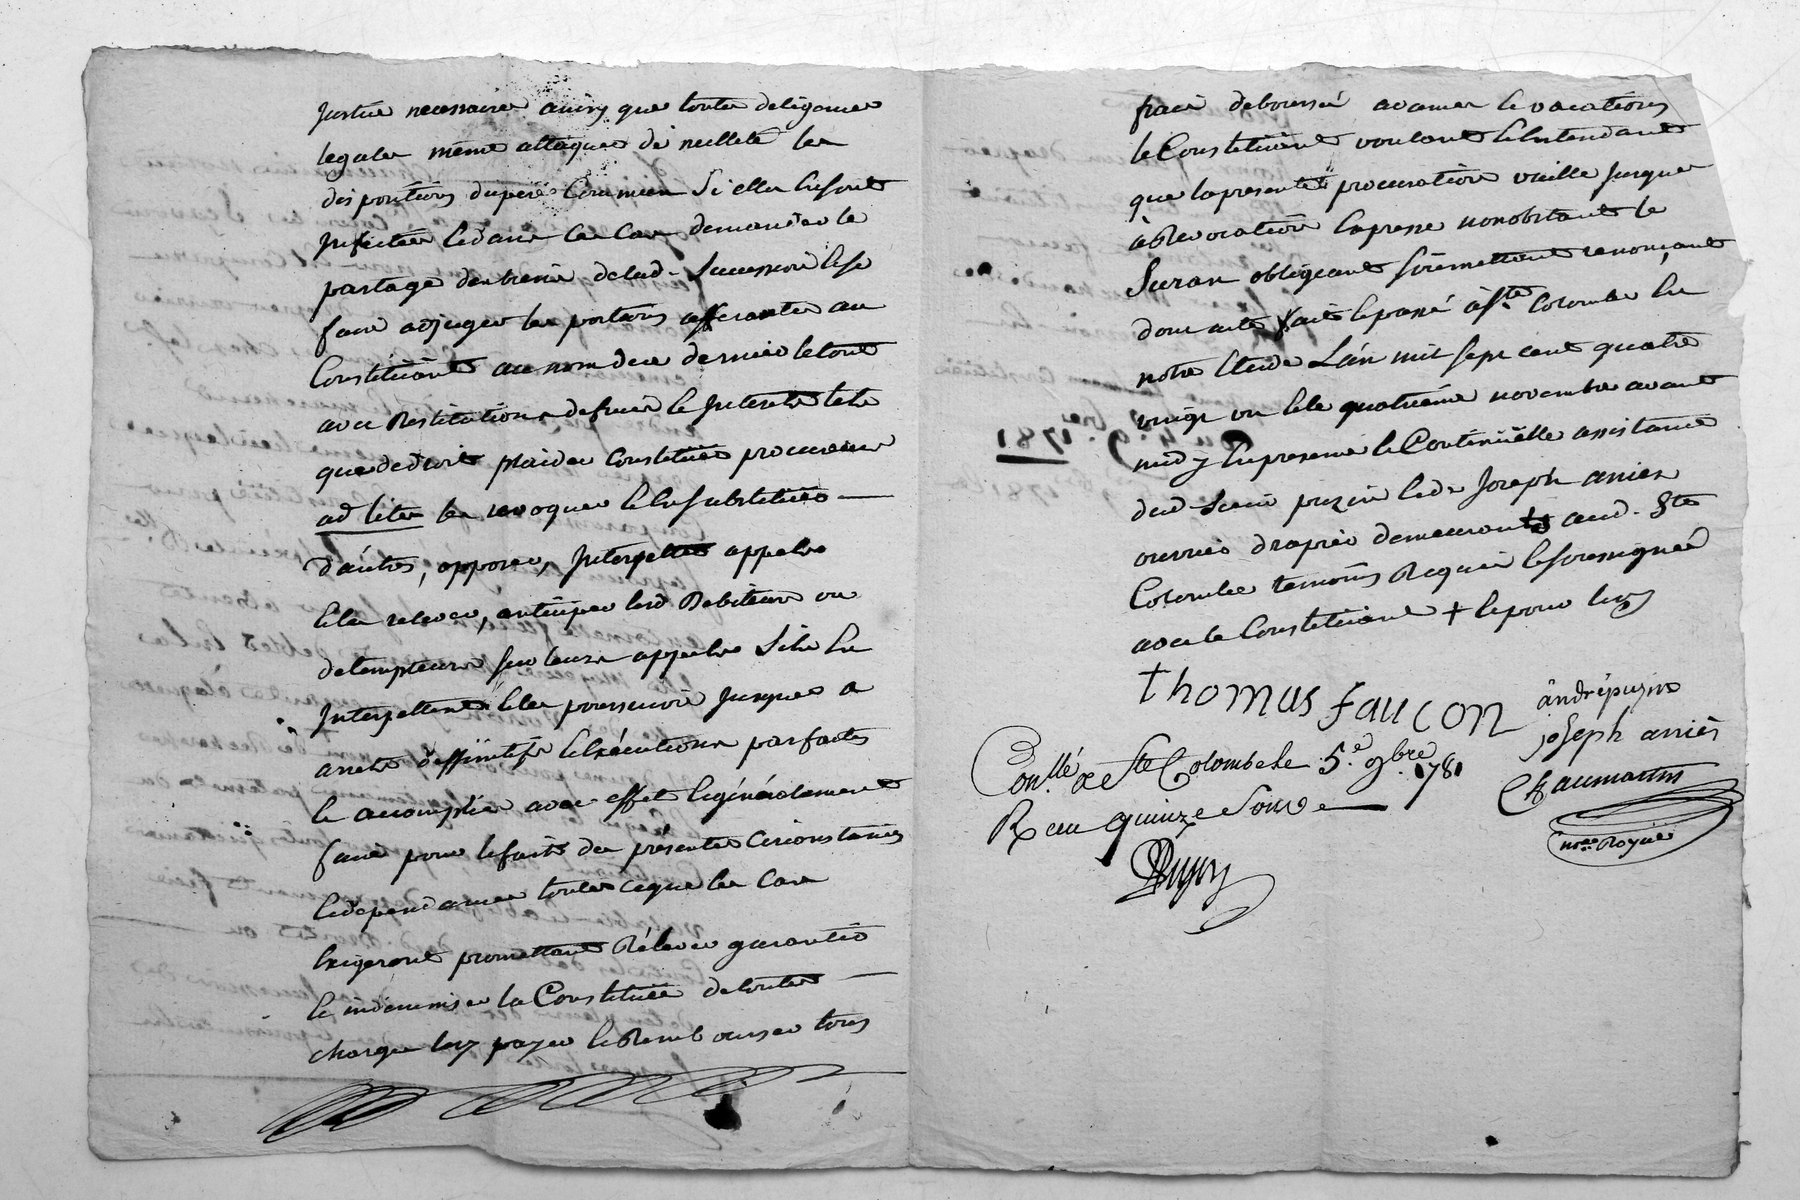 Justice necessaires ainsy que toutes deligences
legales même attaquer de nullité les
dispositions du peré Commun Si elles en sont
Infectées et dans ce cas demander le
partage des biens delad. Succession et se
faire adjuger les portions afferantes au
Constituant au nom dece dernier le tout
avec Restitution defruits et Interets telle
que dedroit plaider Constituer procureur
ad lites les revoquer et En Substituer
d'autres, opposer, Interjetter appels
et les relever, anticiper lesd Debiteurs ou
detempteurs sur leurs appels S'ils En
Interjettent et les poursuivre Jusques a
arrets déffinitifs et Exécutions parfaites
et accomplies avec effet et généralement
faire pour le fait des présentes Circonstances
et dependances toutes ceque les Cas
Exigeront promettant Rélever garantir
et indemniser la Constituée detoutes
charges luy payer et Rembourser tous
frais deboursés avances et vacations
le Constituant voulant et Entendant
que la presente procuration vaille jusques
à Revocation Expresse nonobstant le
Suran obligeant soumettant renonçant
dont acte fait et passé à Ste Colombe En
notre Etude L'an mil sept cent quatre
vingt un et le quatrieme novembre avant
midy En presence et Continuëlle assistance
dud Sieur puzin et de Joseph arriès
ouvrier drapier demeurants aud. Ste
Colombe temoins Requis et soussignés
avec le Constituant + et pour luy
thomas faucon
àndré puzin
joseph arriès
Chaumartin
nore Royal
Conllé a Ste Colombe le 5.e 9bre 1781
R eu quinze Sous